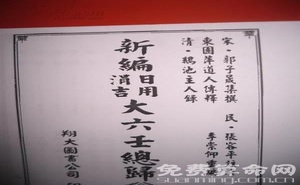 宋·郭子晟集撰 民·張容平
東園萍道人傳釋 李崇仰
清·鵝池主人錄
新編日用涓吉大六壬總歸
翔大圖書公司
免费算命网
suanming.com.cn